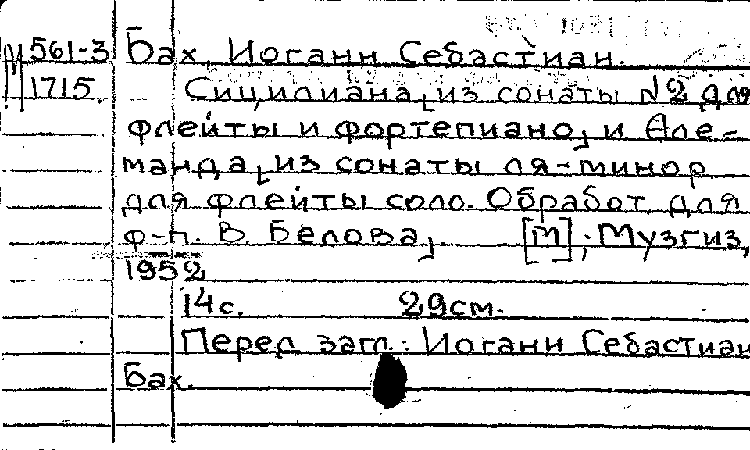 М 561-3 Бах, Иоганн Себастиан.
1715. Сицилиана, из сонаты №2 для
флейты и фортепиано, и Але-
манда, из сонаты ля-минор
для флейты соло. Обработ. для
ф-п. В. Белова. [М], Музгиз,
1952
14 с. 29 см.
Перед загл.: Иоганн Себастиан
Бах.